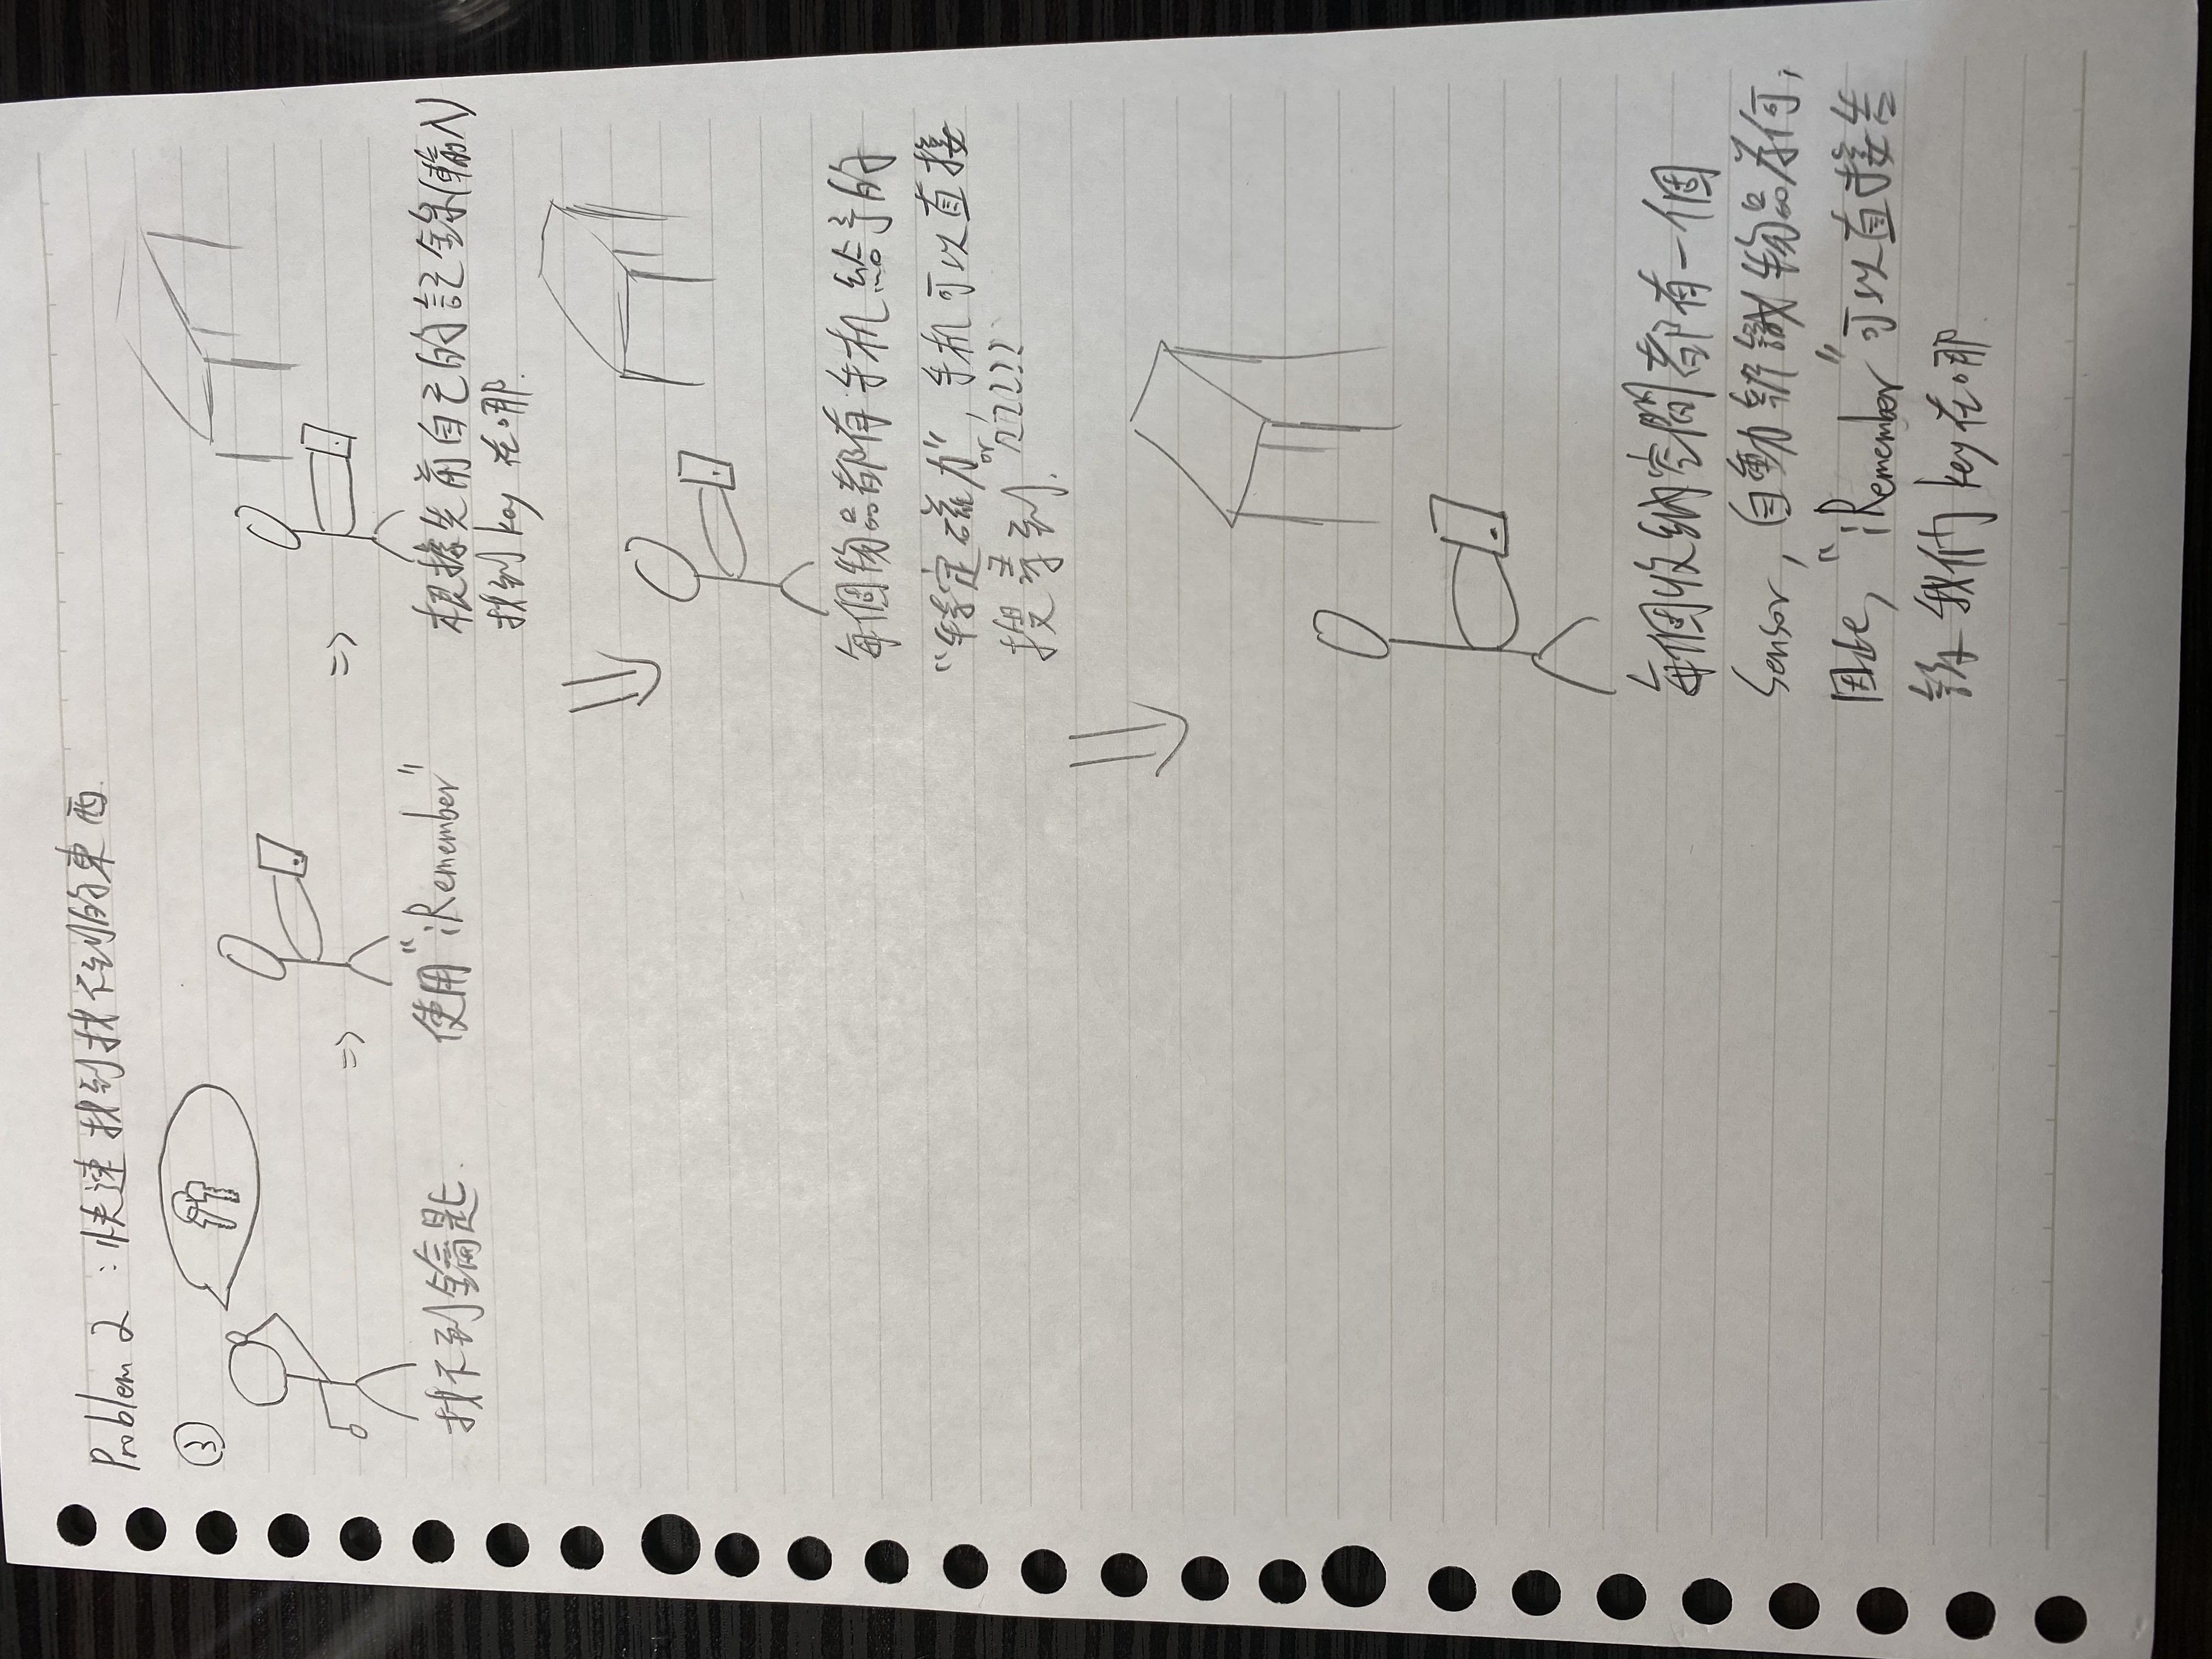 Problem 2 : 快速找到找不到的東西.
③
找不到鑰匙.
=>
使用“iRemember”
=>
根據先前自己的記錄(輸入)
找到 key 在哪.
每個物品都有手机給予的
“特定磁力”, 手机可以直接
or ?????
搜尋到.
每個收納空間都有一個
Sensor, 自動辨識物品為何,
因此, “iRemember”可以直接告
訴我們 key 在哪.